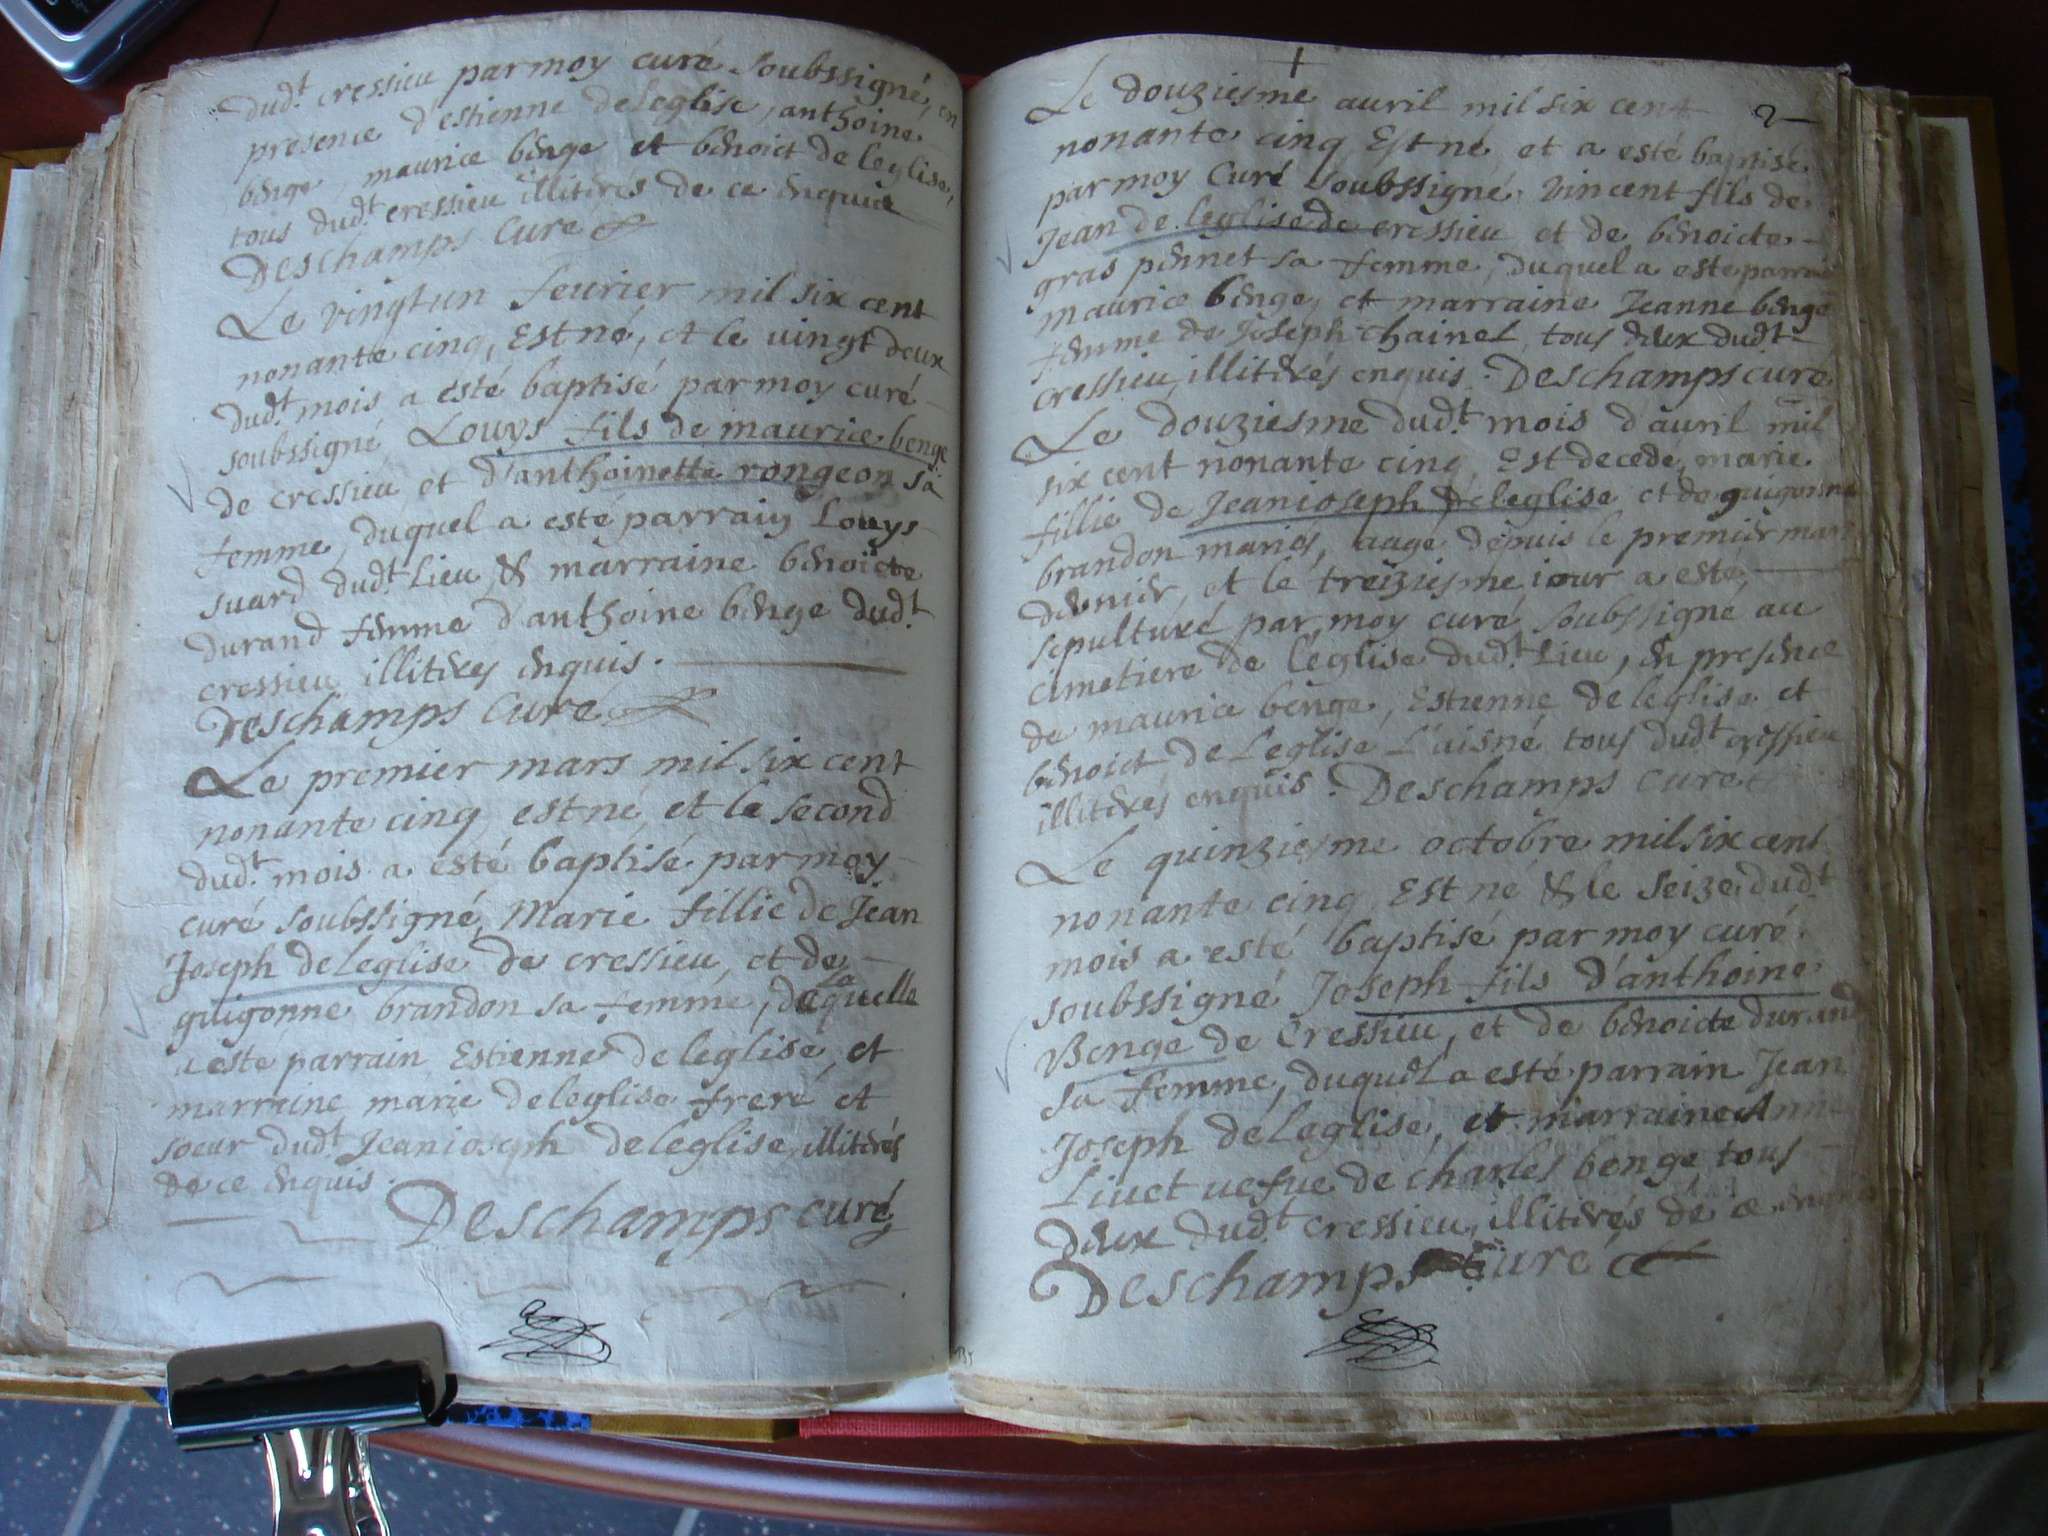 dud.t cressieu par moy curé soubssigné, en
presence d'estienne deleglise, anthoine
benge, maurice benge et benoict de leglise,
tous dud.t cressieu illiterés de ce enquis
Deschamps Curé
Le vingtun feurier mil six cent
nonante cinq, Est né, et le uingt deux
dud.t mois a esté baptisé par moy curé
soubssigné, Louys fils de maurice benge
de cressieu et d'anthoinette rongeon sa
femme, duquel a esté parrain Louys
suard dud.t Lieu, & marraine benoicte
durand femme d'anthoine benge dud.t
cressieu illiterés enquis.
Deschamps Curé
Le premier mars mil six cent
nonante cinq est né, et le second
dud.t mois a esté baptisé par moy
curé soubssigné, Marie fillie de Jean
Joseph deleglise de cressieu, et de
guigonne brandon sa femme, de laquelle
a este parrain Estienne deleglise, et
marraine marie deleglise frere et
soeur dud.t Jean ioseph deleglise, illiterés
de ce enquis.
Deschamps curé
2
Le douziesme auril mil six cent
nonante cinq Est né, et a esté baptisé
par moy Curé soubssigné, Vincent fils de
Jean de leglise de cressieu et de benoicte
gras pennet sa femme, duquel a este parrain
maurice benge, et marraine Jeanne benge
femme de Joseph chainel, tous deux dud.t
cressieu, illiterés enquis. Deschamps curé
Le douziesme dud.t mois d'auril mil
six cent nonante cinq, Est decede, marie
fillie de Jean ioseph deleglise et de guigonne
brandon mariés, aage depuis le premier mars
dernier, et le treiziesme iour a este
sepulturé par moy curé soubssigné au
cimetiere de l'eglise dud.t Lieu, en presence
de maurice benge, Estienne deleglise et
benoict de Leglise L'aisné, tous dud.t cressieu
illiterés enquis. Deschamps curé
Le quinziesme octobre mil six cent
nonante cinq, Est né & le seize dud.t
mois a esté baptisé par moy curé
soubssigné Joseph fils d'anthoine
Benge de Cressieu, et de benoicte durand
sa femme, duquel a esté parrain Jean
Joseph deleglise, et marraine Anne
Liuet uefue de charles benge tous
deux dud.t cressieu, illiterés de ce enquis
Deschamps Curé